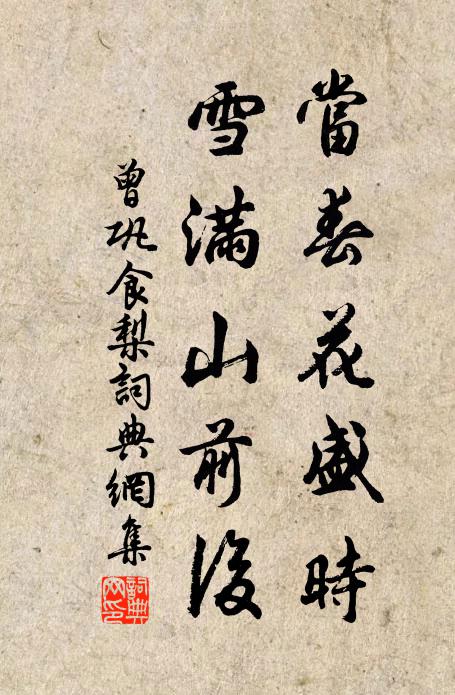 當春花盛時
雪滿山前後
曾巩食梨詞典網集
詞典网印